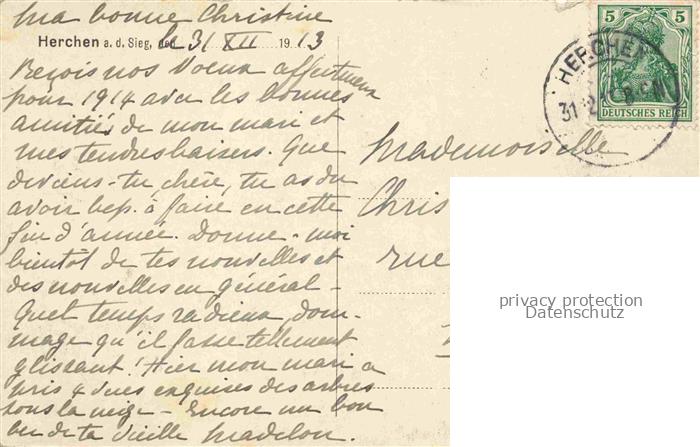 Ma bonne Christine
Herchen a. d. Sieg, den le 31 XII 1913
Reçois nos voeux affectueux
pour 1914 avec les bonnes
amitiés de mon mari et
mes tendres baisers. Que
deviens-tu chère, tu as du
avoir bcp. à faire en cette
fin d'année. Donne-moi
bientôt de tes nouvelles et
des nouvelles en général -
Quel temps radieux, dom-
mage qu'il fasse tellement
glissant! Hier mon mari a
pris 4 vues exquises des arbres
sous la neige - Encore un bon
de ta vieille Madelon.
5 5
DEUTSCHES REICH
HERCHEN
31 12
Mademoiselle
Chris
rue
privacy protection
Datenschutz